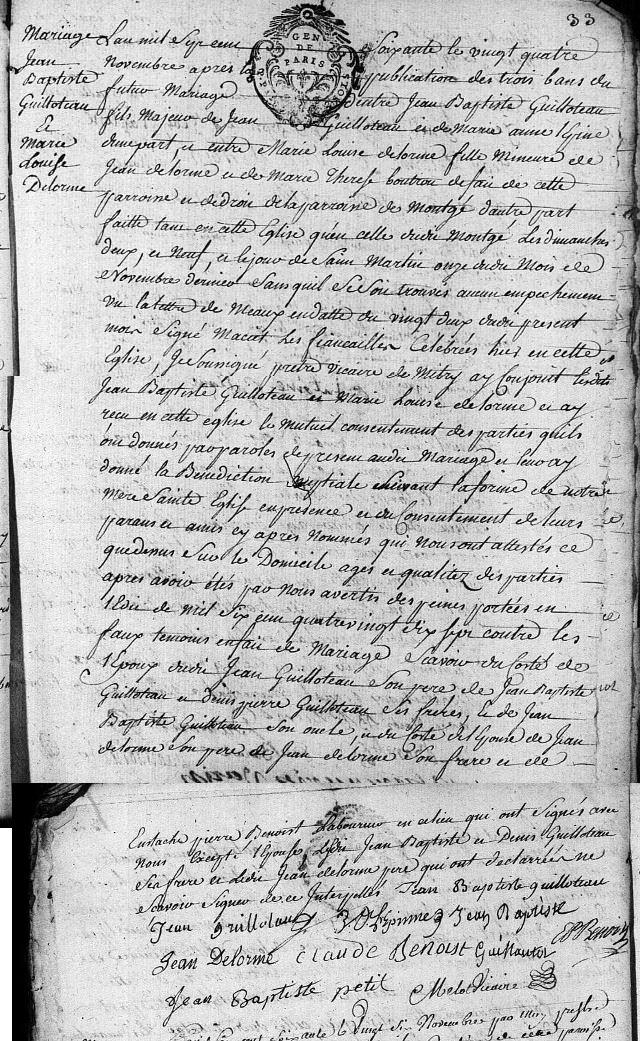 33
Mariage
Jean
Baptiste
Guilloteau
Et
Marie
Louise
Delorme
GEN
DE
PARIS
Lan mil Sept cent Soixante le vingt quatre
Novembre apres la publication des trois bans du
futur Mariage Entre Jean Baptiste Guilloteau
fils Majeur de Jean Guilloteau et de Marie anne
dunepart, et entre Marie Louise delorme fille Mineure de
Jean delorme et de Marie Therese boutrou defait de cette
parroisse et dedroit de la parroisse de Montgé dautre part
faitte tant en cette Eglise quen celle dudit Montgé Les dimanches
deux, et Neuf, et le jour de Saint Martin onze dudit Mois de
Novembre dernier Sans quil Se Soit trouvés aucun empechement
vu la lettre de Meaux en datte du vingt deux dudit present
mois Signé Les fiancailles Celebrées hier en cette
Eglise, Je Soussigné pretre vicaire de Mitry ay Conjoint lesdits
Jean Baptiste Guilloteau et Marie Louise delorme et ay
recu en cette eglise le Mutuel consentement des parties quils
ont donnés par paroles de present audit Mariage et leur ay
donné la Benediction Nuptiale Suivant la forme de notre
Mere Sainte Eglise en presence et du Consentement de leurs
parans et amis cy apres Nommés qui Nous ont attestés ce
que dessus Sur le Domicile ages et qualitez des parties
apres avoir étés par Nous avertis des peines portées en
l'Edit de mil Six cent quatrevingt dix Sept contre les
faux temoins en fait de Mariage Scavoir du Costé de
l'Epoux dudit Jean Guilloteau Son pere de Jean Baptiste
Guilloteau et denis pierre Guilloteau Ses freres, et de Jean
Baptiste Guilloteau Son oncle, et du Costé de l'Epouse de Jean
delorme Son pere de Jean delorme Son frere et de
Eustache pierre Benoist Laboureur en ce lieu qui ont Signés avec
Nous Excepté l'Epouse, Ledit Jean Baptiste et Denis Guilloteau
Ses frere et Ledit Jean delorme pere qui ont declarés ne
Scavoir Signer de ce Interpellés Jean Baptiste guilloteau
Jean guillotaux Jean Baptiste
Jean Delorme CLAUDE BENOIST Guillautot Benoist
Jean Baptiste petit Vicaire